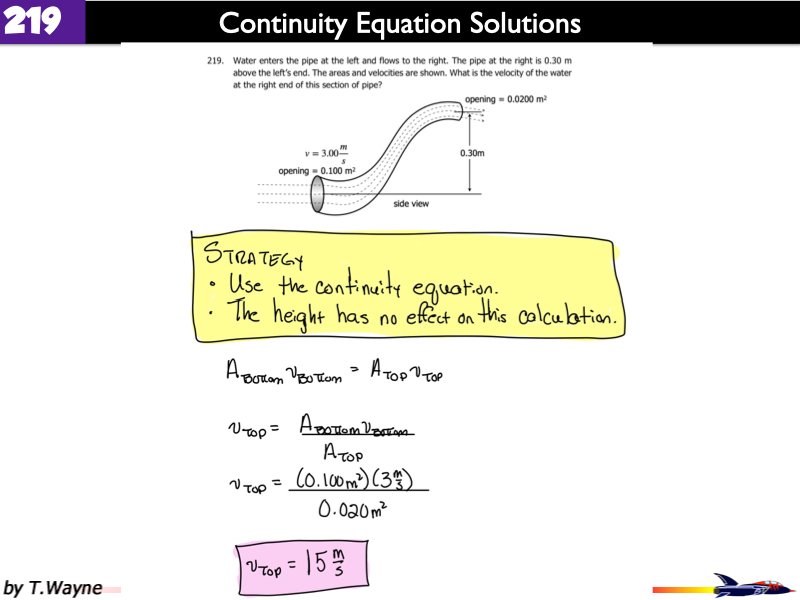 219
Continuity Equation Solutions
219. Water enters the pipe at the left and flows to the right. The pipe at the right is 0.30 m
above the left's end. The areas and velocities are shown. What is the velocity of the water
at the right end of this section of pipe?
opening = 0.0200 m²
v = 3.00 m/s
0.30m
opening = 0.100 m²
side view
STRATEGY
• Use the continuity equation.
• The height has no effect on this calculation.
A_BOTTOM v_BOTTOM = A_TOP v_TOP
v_TOP = A_BOTTOM v_BOTTOM / A_TOP
v_TOP = (0.100 m²)(3 m/s) / 0.020 m²
v_TOP = 15 m/s
by T.Wayne